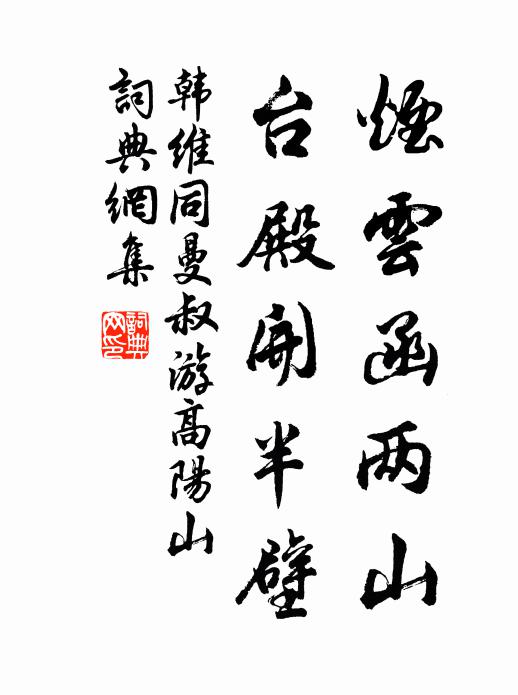 煙雲函两山
台殿開半壁
韩維同曼叔游高陽山
詞典網集
詞典網印